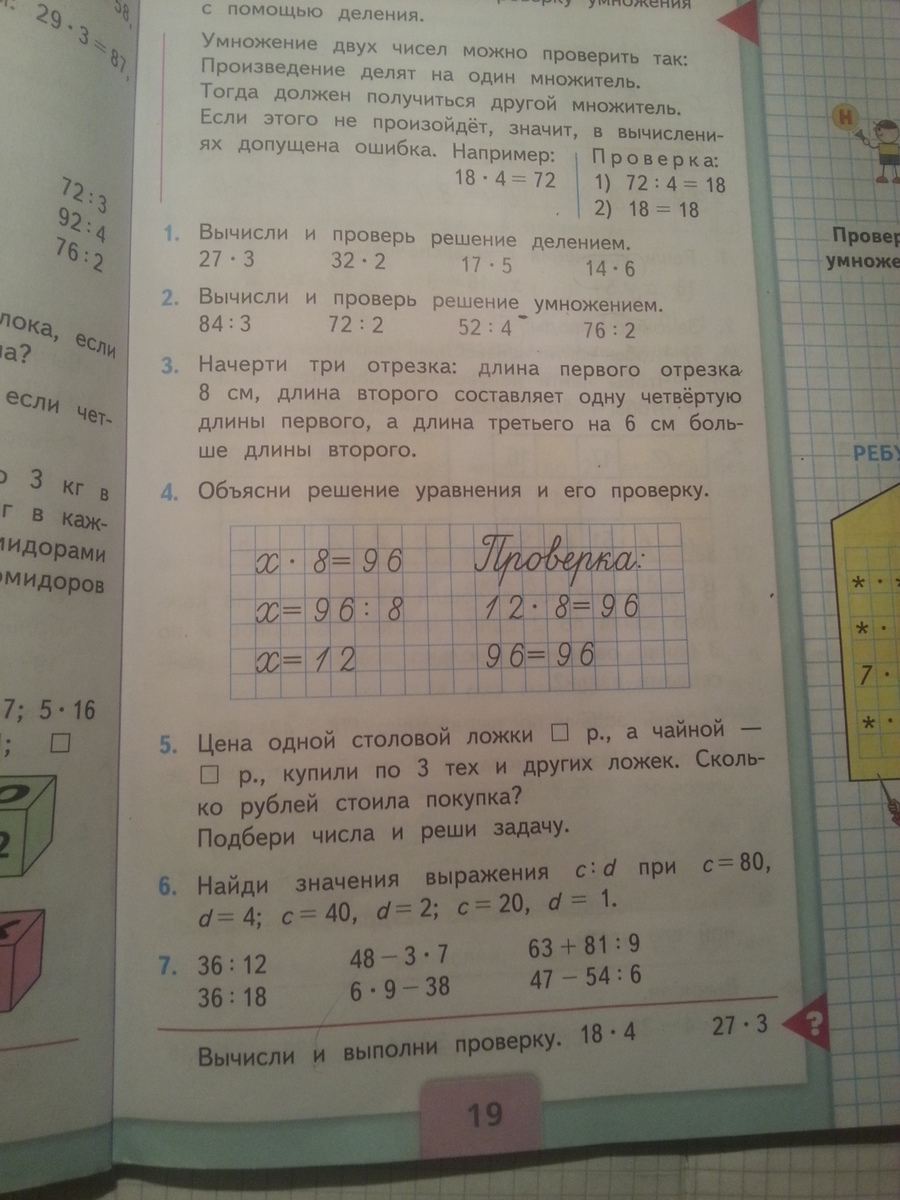 29 · 3 = 87,
58,
72 : 3
92 : 4
76 : 2
если
если чет-
3 кг в
г в каж-
7; 5 · 16
умножения
с помощью деления.
Умножение двух чисел можно проверить так:
Произведение делят на один множитель.
Тогда должен получиться другой множитель.
Если этого не произойдёт, значит, в вычислени-
ях допущена ошибка. Например:
18 · 4 = 72
Проверка:
1) 72 : 4 = 18
2) 18 = 18
1. Вычисли и проверь решение делением.
27 · 3 32 · 2 17 · 5 14 · 6
2. Вычисли и проверь решение умножением.
84 : 3 72 : 2 52 : 4 76 : 2
3. Начерти три отрезка: длина первого отрезка
8 см, длина второго составляет одну четвёртую
длины первого, а длина третьего на 6 см боль-
ше длины второго.
4. Объясни решение уравнения и его проверку.
x · 8 = 96 Проверка:
x = 96 : 8 12 · 8 = 96
x = 12 96 = 96
5. Цена одной столовой ложки □ р., а чайной —
□ р., купили по 3 тех и других ложек. Сколь-
ко рублей стоила покупка?
Подбери числа и реши задачу.
6. Найди значения выражения c : d при c = 80,
d = 4; c = 40, d = 2; c = 20, d = 1.
7. 36 : 12 48 – 3 · 7 63 + 81 : 9
36 : 18 6 · 9 – 38 47 – 54 : 6
Вычисли и выполни проверку. 18 · 4 27 · 3
?
19
Н
7 ·